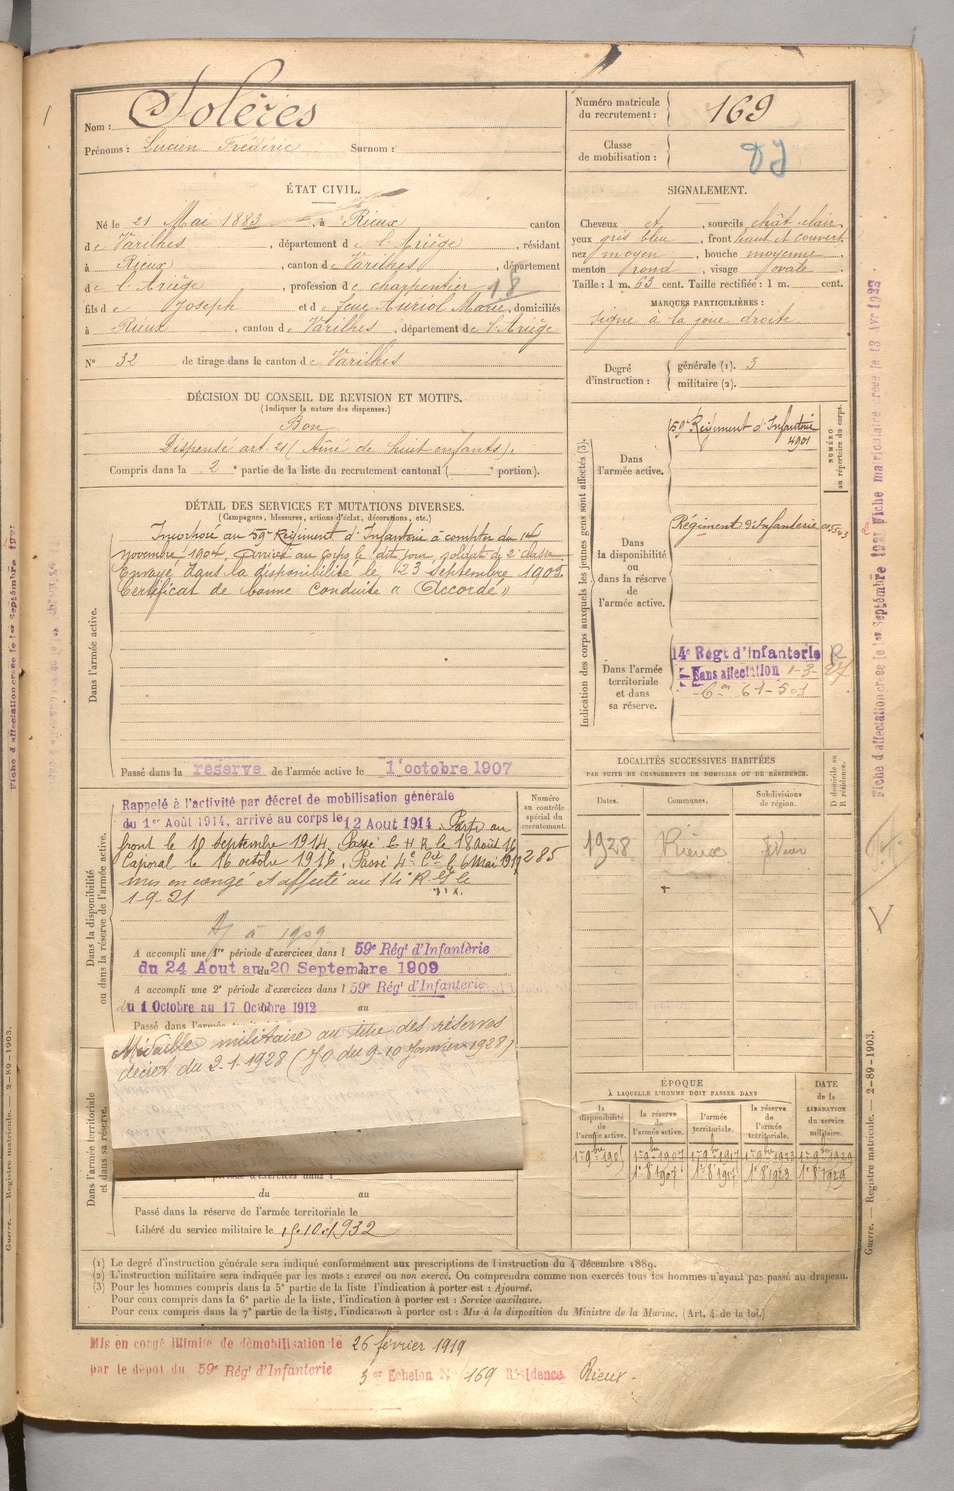 Nom : Solères
Prénoms : Lucien Frédéric Surnom :
Numéro matricule du recrutement : 169
Classe de mobilisation :
ÉTAT CIVIL.
Né le 21 Mai 1883, à Rieux canton
de Varilhes, département de l'Ariège, résidant
à Rieux, canton de Varilhes, département
de l'Ariège, profession de charpentier 18
fils de Joseph et de feue Auriol Marie, domiciliés
à Rieux, canton de Varilhes, département de l'Ariège
N° 32 de tirage dans le canton de Varilhes
SIGNALEMENT.
Cheveux et, sourcils chât. clair,
yeux gris bleu, front haut et couvert,
nez moyen, bouche moyenne,
menton rond, visage ovale.
Taille : 1 m. 63 cent. Taille rectifiée : 1 m. cent.
MARQUES PARTICULIÈRES :
Signe à la joue droite
Degré d'instruction : générale (1). 3
militaire (2).
DÉCISION DU CONSEIL DE REVISION ET MOTIFS.
(Indiquer la nature des dispenses.)
Bon
Dispensé art. 21 (Aîné de huit enfants).
Compris dans la 2e partie de la liste du recrutement cantonal ( e portion).
DÉTAIL DES SERVICES ET MUTATIONS DIVERSES.
(Campagnes, blessures, actions d'éclat, décorations, etc.)
Dans l'armée active.
Incorporé au 59e Régiment d'Infanterie à compter du 1er
novembre 1904. Arrivé au Corps le dit jour, soldat de 2e classe.
Envoyé dans la disponibilité le 23 septembre 1905.
Certificat de bonne Conduite « Accordé »
Passé dans la réserve de l'armée active le 1er octobre 1907
Indication des corps auxquels les jeunes gens sont affectés (3).
NUMÉRO au répertoire du corps.
Dans l'armée active.
59e Régiment d'Infanterie
4901
Dans la disponibilité ou dans la réserve de l'armée active.
Régiment d'Infanterie
Dans l'armée territoriale et dans sa réserve.
14e Régt d'Infanterie
Sans affectation 1-3-27
61-501
Dans la disponibilité ou dans la réserve de l'armée active.
Rappelé à l'activité par décret de mobilisation générale
du 1er Août 1914, arrivé au corps le 12 Aout 1914. Parti au
front le 10 septembre 1914. Passé C H R le 18 août 16
Caporal le 16 octobre 1916. Passé 4e Cie le 6 Mai 1917
mis en congé et affecté au 14e R.I. le
1-9-21
Numéro au contrôle spécial du recrutement.
285
A à 1909
A accompli une 1re période d'exercices dans l 59e Régt d'Infanterie
du 24 Aout au 20 Septembre 1909
A accompli une 2e période d'exercices dans l 59e Régt d'Infanterie
du 1 Octobre au 17 Octobre 1912 au
Passé dans l'armée
Médaille militaire au titre des réserves
décret du 2.1.1928 (JO du 9-10 Janvier 1928)
Dans l'armée territoriale et dans sa réserve.
du au
Passé dans la réserve de l'armée territoriale le
Libéré du service militaire le 15.10.1932
LOCALITÉS SUCCESSIVES HABITÉES
PAR SUITE DE CHANGEMENTS DE DOMICILE OU DE RÉSIDENCE.
Dates. Communes. Subdivisions de région. D domicile ou R résidence.
1928 Rieux
ÉPOQUE
À LAQUELLE L'HOMME DOIT PASSER DANS
DATE de la LIBÉRATION du service militaire.
la disponibilité de l'armée active. la réserve de l'armée active. l'armée territoriale. la réserve de l'armée territoriale.
1er 9bre 1907 1er 9bre 1917 1er 9bre 1923 1er 9bre 1929
1er 8 1907 1er 8 1917 1er 8 1923 1er 8 1929
(1) Le degré d'instruction générale sera indiqué conformément aux prescriptions de l'instruction du 4 décembre 1889.
(2) L'instruction militaire sera indiquée par les mots : exercé ou non exercé. On comprendra comme non exercés tous les hommes n'ayant pas passé au drapeau.
(3) Pour les hommes compris dans la 5e partie de la liste l'indication à porter est : Ajourné.
Pour ceux compris dans la 6e partie de la liste, l'indication à porter est : Service auxiliaire.
Pour ceux compris dans la 7e partie de la liste, l'indication à porter est : Mis à la disposition du Ministre de la Marine. (Art. 4 de la loi.)
Mis en congé illimité de démobilisation le 26 février 1919
par le dépôt du 59e Régt d'Infanterie 3 er Echelon N° 169 Résidence Rieux
Fiche d'affectation créée le 1er Septembre 1921 Fiche matriculaire créée le 13 Avr 1923
Guerre. — Registre matricule. — 2-89-1903.
Guerre. — Registre matricule. — 2-89-1903.
Fiche d'affectation créée le 1er Septembre 1921